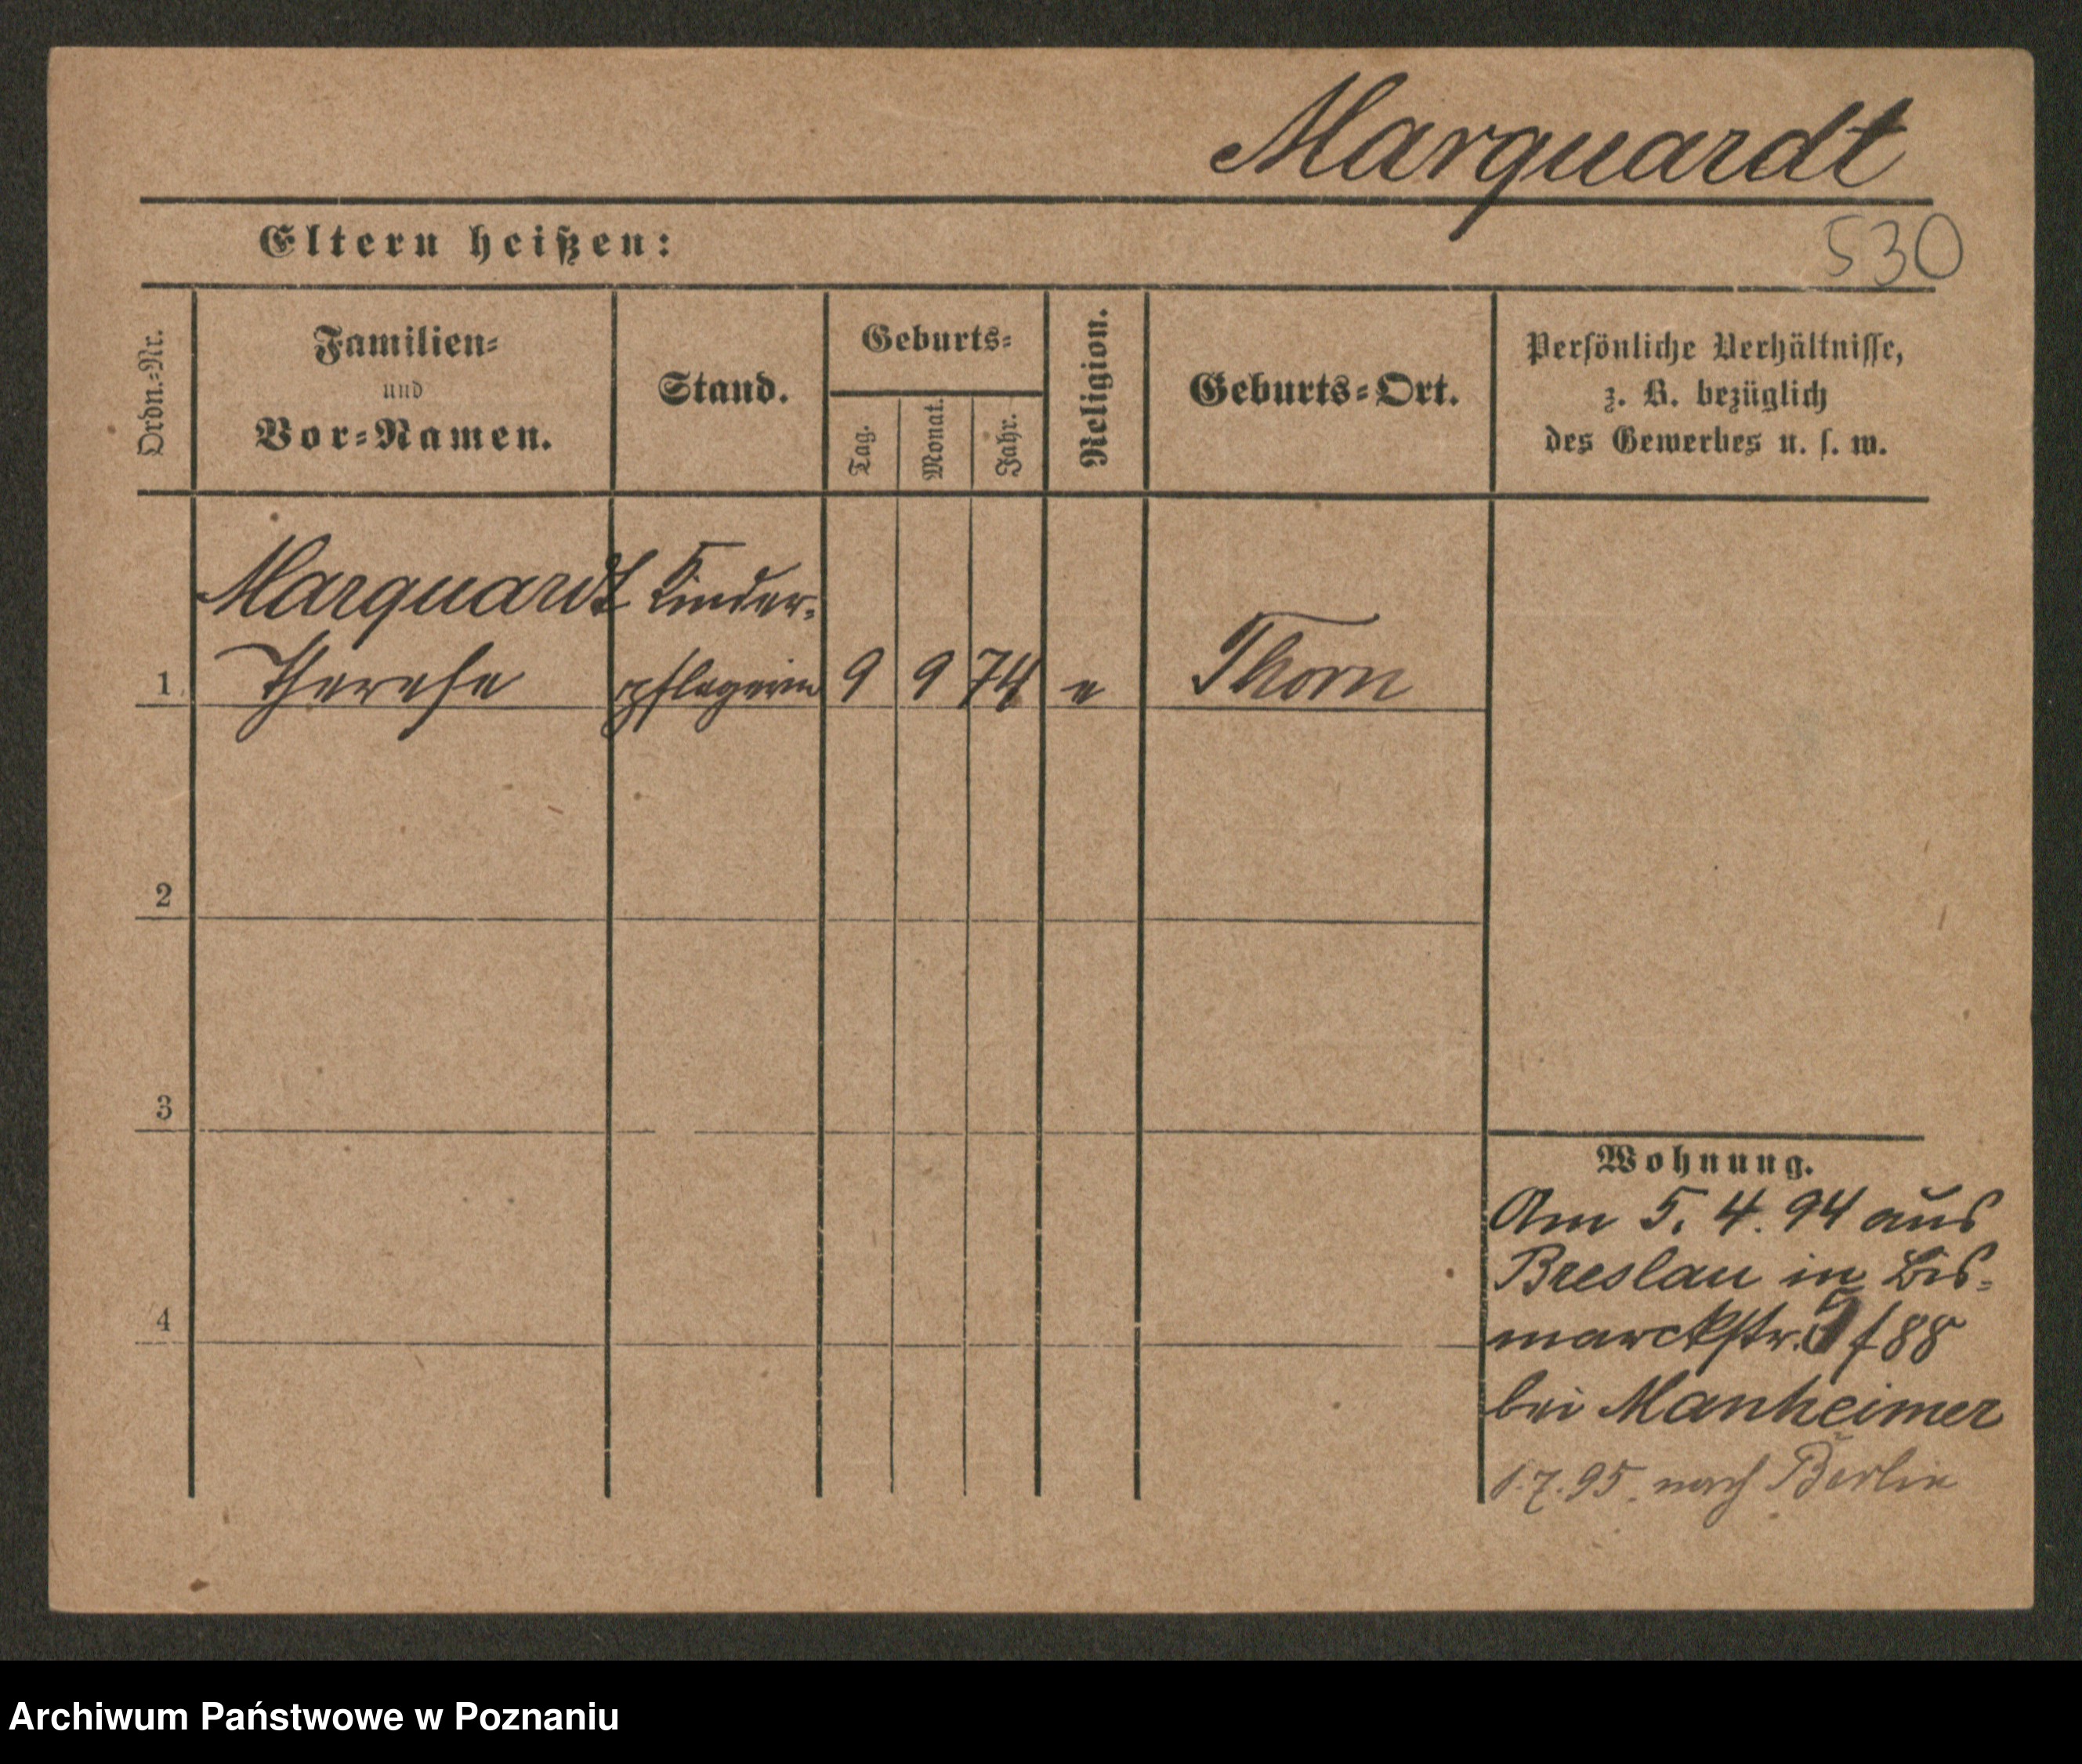 Marquardt
Eltern heißen:
530
Ordn.-Nr.
Familien-
und
Vor-Namen.
Stand.
Geburts-
Tag.
Monat.
Jahr.
Religion.
Geburts-Ort.
Persönliche Verhältnisse,
z. B. bezüglich
des Gewerbes u. s. w.
Marquardt Kinder-
1 Therese pflegerin 9 9 74 e Thorn
2
3
4
Wohnung.
Am 5. 4. 94 aus
Breslau in Bis-
marckstr. 88
bei Manheimer
1.7.95. nach Berlin
Archiwum Państwowe w Poznaniu